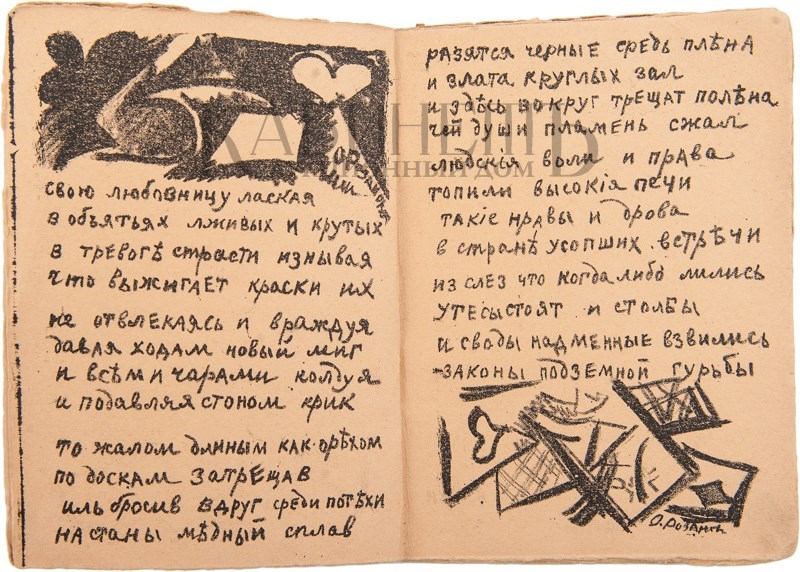 свою любовницу лаская
в объятьях лживых и крутых
в тревогѣ страсти изнывая
что выжигает краски их
не отвлекаясь и враждуя
давля ходам новый миг
и всѣми чарами колдуя
и подавляя стоном крик
то жалом длиным как орѣхом
по доскам затрещав
иль бросив вдруг среди потѣхи
на станы мѣдный сплав
разятся черные средь плѣна
и злата круглых зал
и здѣсь вокруг трещат полѣна
чей души пламень сжал
людскія воли и права
топили высокія печи
такіе нравы и дрова
в странѣ усопших встрѣчи
из слез что когда либо лились
утесы стоят и столбы
и своды надменные взвились
законы подземной гурьбы
О. Розанов